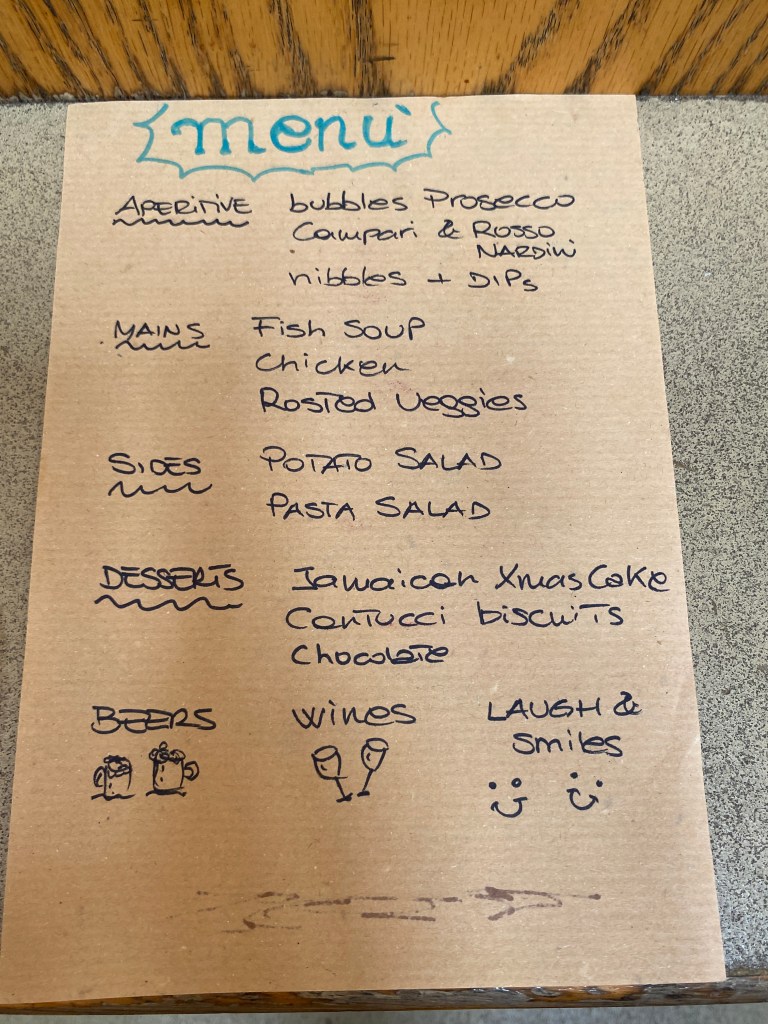 menù
APERITIVE bubbles Prosecco
Campari & ROSSO
NARDINI
nibbles + DIPs
MAINS Fish SOUP
Chicken
ROSTED Veggies
SIDES POTATO SALAD
PASTA SALAD
DESSERTS Jamaican Xmas Cake
CanTucci biscuiTs
ChocolaTe
BEERS wines LAUGH &
Smiles